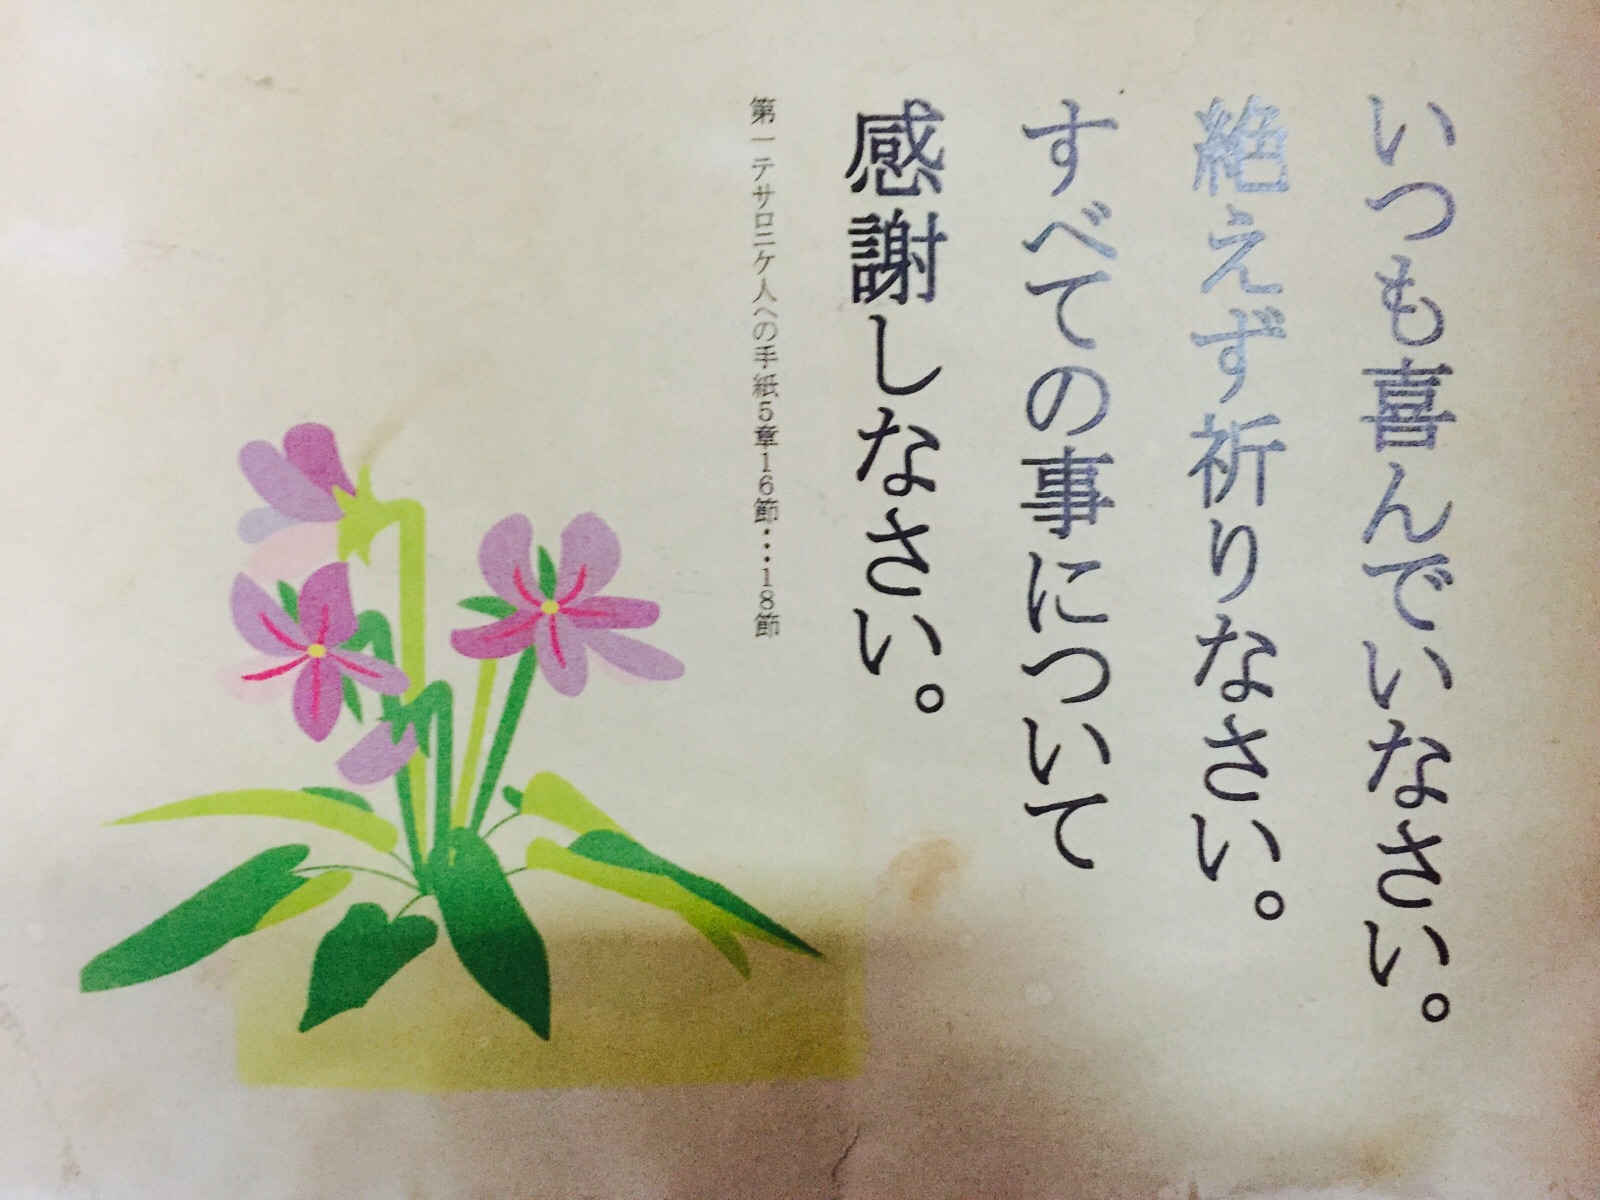 いつも喜んでいなさい。
絶えず祈りなさい。
すべての事について
感謝しなさい。
第一テサロニケ人への手紙5章16節…18節